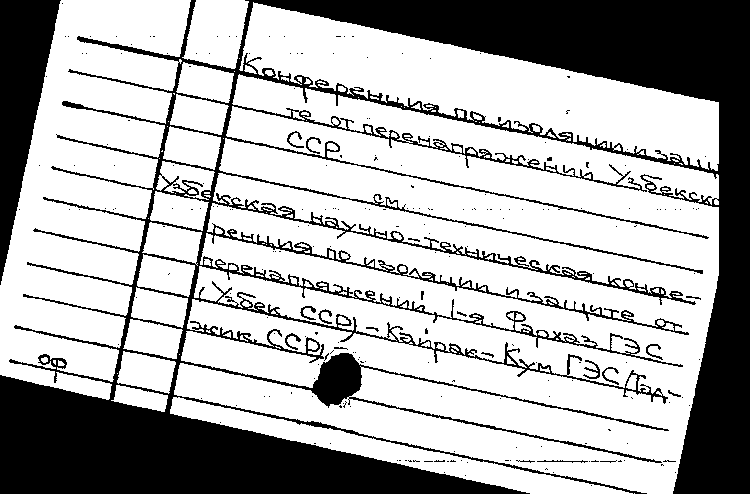 Конференция по изоляции и защи
те от перенапряжений Узбекско
ССР.
см.
Узбекская научно-техническая конфе-
ренция по изоляции и защите от
перенапряжений, 1-я. Фархаз ГЭС
(Узбек. ССР) - Кайрак-Кум ГЭС (Тад-
жик. ССР),
оф